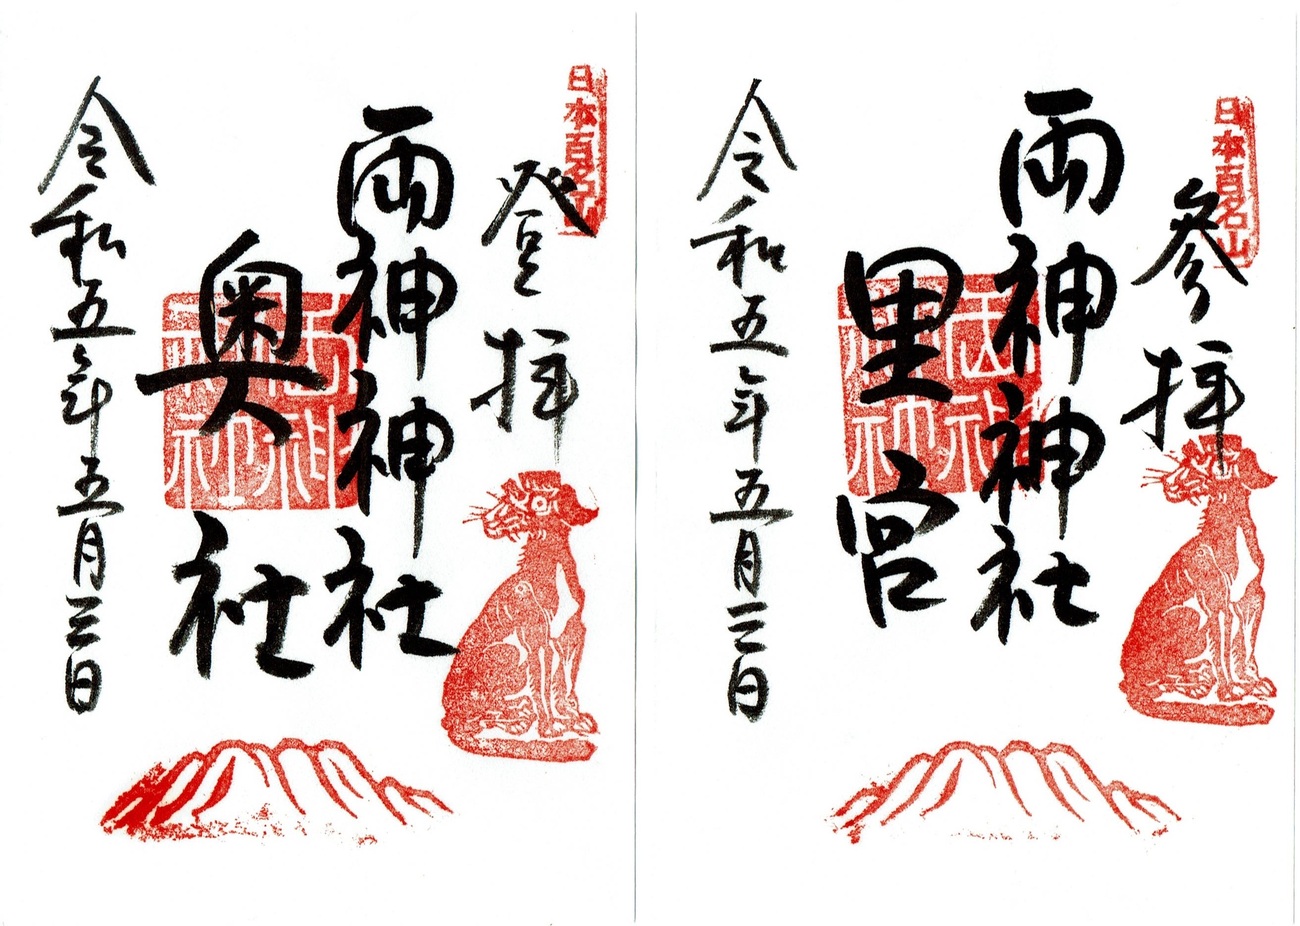 日本百名山
参拝
両神神社
里宮
令和五年五月三日
日本百名山
登拝
両神神社
奥社
令和五年五月三日